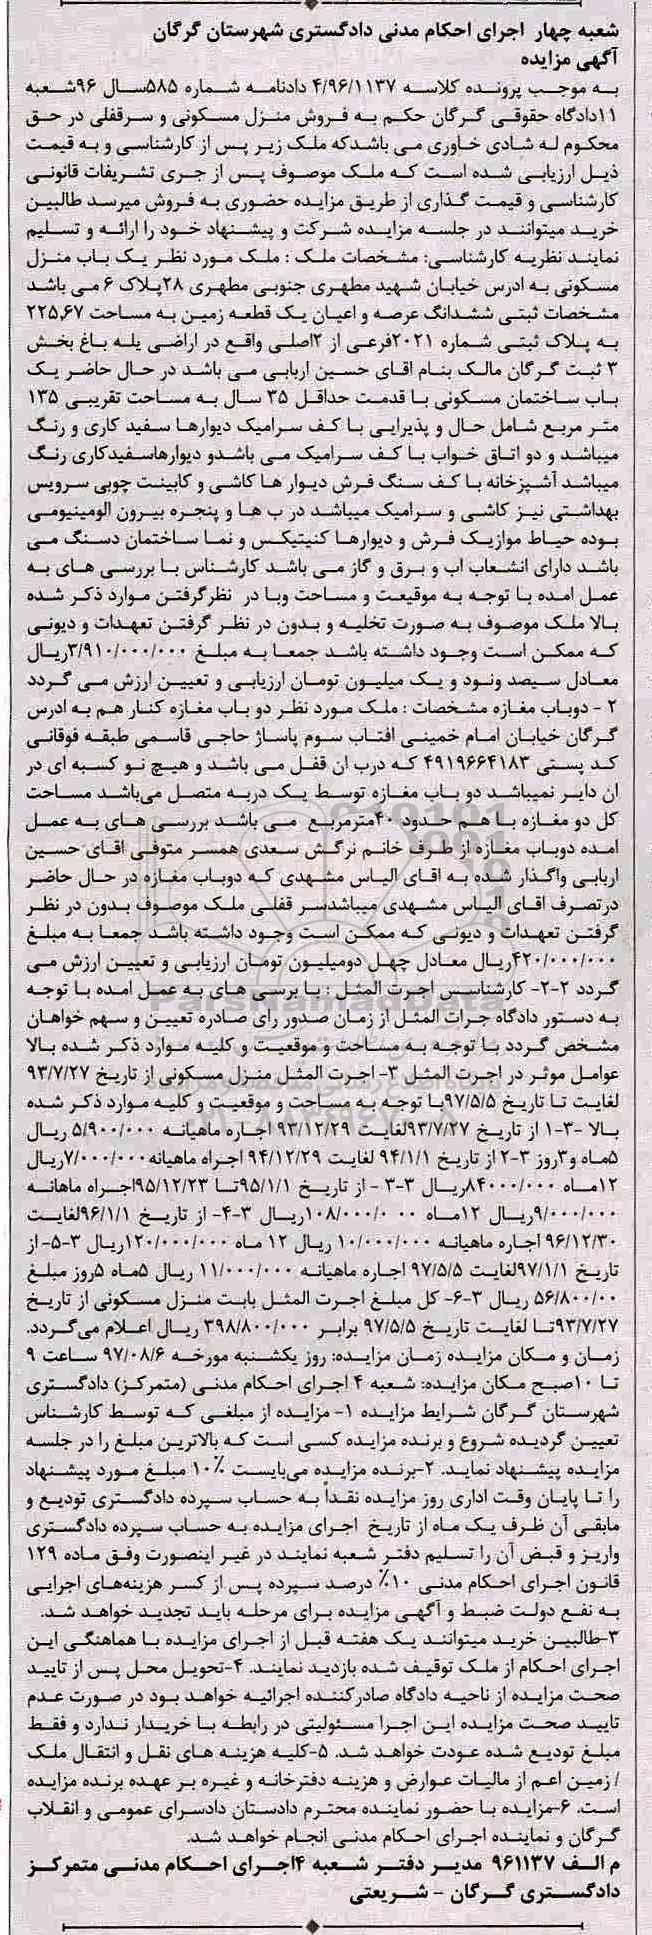 شعبه چهار اجرای احکام مدنی دادگستری شهرستان گرگان
آگهی مزایده
به موجب پرونده کلاسه ۴/۹۶/۱۱۳۷ دادنامه شماره ۵۸۵سال ۹۶شعبه
۱۱دادگاه حقوقی گرگان حکم به فروش منزل مسکونی و سرقفلی در حق
محکوم له شادی خاوری می باشدکه ملک زیر پس از کارشناسی و به قیمت
ذیل ارزیابی شده است که ملک موصوف پس از جری تشریفات قانونی
کارشناسی و قیمت گذاری از طریق مزایده حضوری به فروش میرسد طالبین
خرید میتوانند در جلسه مزایده شرکت و پیشنهاد خود را ارائه و تسلیم
نمایند نظریه کارشناسی: مشخصات ملک : ملک مورد نظر یک باب منزل
مسکونی به ادرس خیابان شهید مطهری جنوبی مطهری ۲۸پلاک ۶ می باشد
مشخصات ثبتی ششدانگ عرصه و اعیان یک قطعه زمین به مساحت ۲۲۵,۶۷
به پلاک ثبتی شماره ۲۰۲۱فرعی از ۲اصلی واقع در اراضی یله باغ بخش
۳ ثبت گرگان مالک بنام اقای حسین اربابی می باشد در حال حاضر یک
باب ساختمان مسکونی با قدمت حداقل ۳۵ سال به مساحت تقریبی ۱۳۵
متر مربع شامل حال و پذیرایی با کف سرامیک دیوارها سفید کاری و رنگ
میباشد و دو اتاق خواب با کف سرامیک می باشدو دیوارهاسفیدکاری رنگ
میباشد آشپزخانه با کف سنگ فرش دیوار ها کاشی و کابینت چوبی سرویس
بهداشتی نیز کاشی و سرامیک میباشد در ب ها و پنجره بیرون الومینیومی
بوده حیاط موازیک فرش و دیوارها کنیتیکس و نما ساختمان دسنگ می
باشد دارای انشعاب اب و برق و گاز می باشد کارشناس با بررسی های به
عمل امده با توجه به موقیعت و مساحت وبا در نظرگرفتن موارد ذکر شده
بالا ملک موصوف به صورت تخلیه و بدون در نظر گرفتن تعهدات و دیونی
که ممکن است وجود داشته باشد جمعا به مبلغ ۳/۹۱۰/۰۰۰/۰۰۰ریال
معادل سیصد ونود و یک میلیون تومان ارزیابی و تعیین ارزش می گردد
۲ - دوباب مغازه مشخصات : ملک مورد نظر دو باب مغازه کنار هم به ادرس
گرگان خیابان امام خمینی افتاب سوم پاساژ حاجی قاسمی طبقه فوقانی
کد پستی ۴۹۱۹۶۶۴۱۸۳ که درب ان قفل می باشد و هیچ نو کسبه ای در
ان دایر نمیباشد دو باب مغازه توسط یک دربه متصل می‌باشد مساحت
کل دو مغازه با هم حدود ۴۰مترمربع می باشد بررسی های به عمل
امده دوباب مغازه از طرف خانم نرگش سعدی همسر متوفی اقای حسین
اربابی واگذار شده به اقای الیاس مشهدی که دوباب مغازه در حال حاضر
درتصرف اقای الیاس مشهدی میباشدسر قفلی ملک موصوف بدون در نظر
گرفتن تعهدات و دیونی که ممکن است وجود داشته باشد جمعا به مبلغ
۴۲۰/۰۰۰/۰۰۰ریال معادل چهل دومیلیون تومان ارزیابی و تعیین ارزش می
گردد ۲-۲- کارشناسس اجرت المثل : با برسی های به عمل امده با توجه
به دستور دادگاه جرات المثل از زمان صدور رای صادره تعیین و سهم خواهان
مشخص گردد با توجه به مساحت و موقعیت و کلیه موارد ذکر شده بالا
عوامل موثر در اجرت المثل ۳- اجرت المثل منزل مسکونی از تاریخ ۹۳/۷/۲۷
لغایت تا تاریخ ۹۷/۵/۵با توجه به مساحت و موقعیت و کلیه موارد ذکر شده
بالا -۳-۱ از تاریخ ۹۳/۷/۲۷لغایت ۹۳/۱۲/۲۹ اجاره ماهیانه ۵/۹۰۰/۰۰۰ ریال
۵ماه و۳روز ۳-۲ از تاریخ ۹۴/۱/۱ لغایت ۹۴/۱۲/۲۹ اجراه ماهیانه۷/۰۰۰/۰۰۰ریال
۱۲ماه ۸۴۰۰۰/۰۰۰ریال ۳-۳ - از تاریخ ۹۵/۱/۱تا ۹۵/۱۲/۲۳اجراه ماهانه
۹/۰۰۰/۰۰۰ریال ۱۲ماه ۱۰۸/۰۰۰/۰ ۰۰ریال ۳-۴- از تاریخ ۹۶/۱/۱لغایت
۹۶/۱۲/۳۰ اجاره ماهیانه ۱۰/۰۰۰/۰۰۰ ریال ۱۲ ماه ۱۲۰/۰۰۰/۰۰۰ریال ۳-۵- از
تاریخ ۹۷/۱/۱لغایت ۹۷/۵/۵ اجاره ماهیانه ۱۱/۰۰۰/۰۰۰ ریال ۵ماه ۵روز مبلغ
۵۶/۸۰۰/۰۰ ریال ۳-۶- کل مبلغ اجرت المثل بابت منزل مسکونی از تاریخ
۹۳/۷/۲۷تا لغایت تاریخ ۹۷/۵/۵ برابر ۳۹۸/۸۰۰/۰۰۰ ریال اعلام می‌گردد.
زمان و مکان مزایده زمان مزایده: روز یکشنبه مورخه ۹۷/۰۸/۶ ساعت ۹
تا ۱۰صبح مکان مزایده: شعبه ۴ اجرای احکام مدنی (متمرکز) دادگستری
شهرستان گرگان شرایط مزایده ۱- مزایده از مبلغی که توسط کارشناس
تعیین گردیده شروع و برنده مزایده کسی است که بالاترین مبلغ را در جلسه
مزایده پیشنهاد نماید. ۲-برنده مزایده می‌بایست ۱۰٪ مبلغ مورد پیشنهاد
را تا پایان وقت اداری روز مزایده نقداً به حساب سپرده دادگستری تودیع و
مابقی آن ظرف یک ماه از تاریخ اجرای مزایده به حساب سپرده دادگستری
واریز و قبض آن را تسلیم دفتر شعبه نمایند در غیر اینصورت وفق ماده ۱۲۹
قانون اجرای احکام مدنی ۱۰٪ درصد سپرده پس از کسر هزینه‌های اجرایی
به نفع دولت ضبط و آگهی مزایده برای مرحله باید تجدید خواهد شد.
۳-طالبین خرید میتوانند یک هفته قبل از اجرای مزایده با هماهنگی این
اجرای احکام از ملک توقیف شده بازدید نمایند. ۴-تحویل محل پس از تایید
صحت مزایده از ناحیه دادگاه صادرکننده اجرائیه خواهد بود در صورت عدم
تایید صحت مزایده این اجرا مسئولیتی در رابطه با خریدار ندارد و فقط
مبلغ تودیع شده عودت خواهد شد. ۵-کلیه هزینه های نقل و انتقال ملک
/ زمین اعم از مالیات عوارض و هزینه دفترخانه و غیره بر عهده برنده مزایده
است. ۶-مزایده با حضور نماینده محترم دادستان دادسرای عمومی و انقلاب
گرگان و نماینده اجرای احکام مدنی انجام خواهد شد.
م الف ۹۶۱۱۳۷ مدیر دفتر شعبه ۴اجرای احکام مدنی متمرکز
دادگستری گرگان - شریعتی